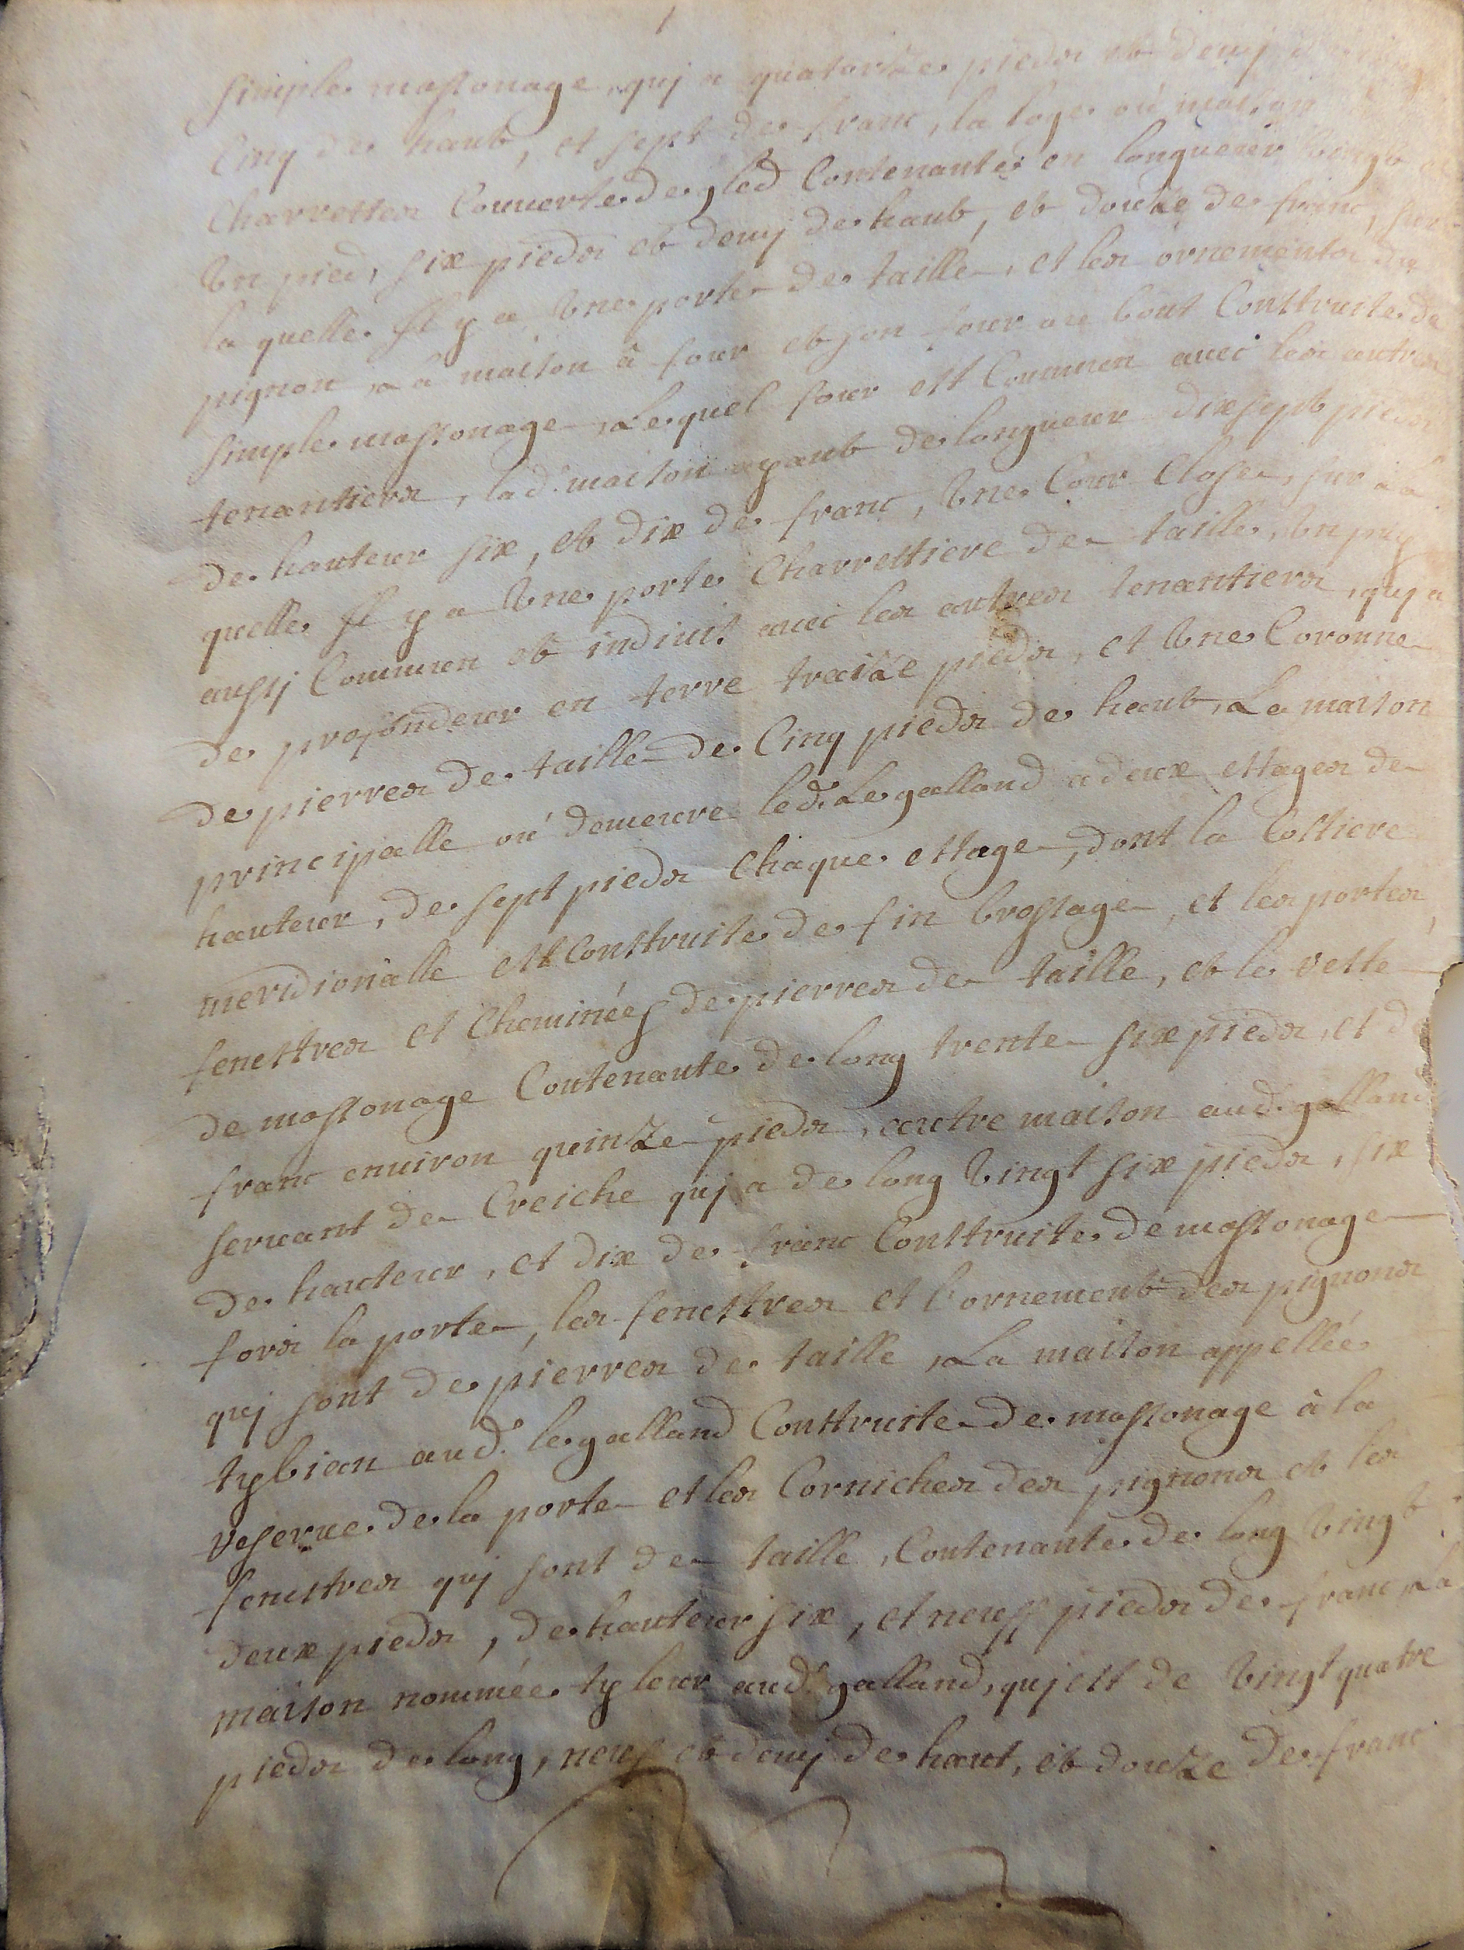 simple massonage, quj a quatorze pieds et demj de
Cinq de haut, et sept de franc, la loge où maison
Charrettes Couverte de gled Contenante en longueur Vingt et
Un pied, six pieds et demj de haut, et douze de franc, sur
la quelle Il y a Une porte de taille, et les ornements du
pignon, la maison à four et son four au bout Conttruite de
simple massonage, Le quel four est Commun avec les autres
tenantiers, lad. maison ayant de longueur dix sept pieds
de hauteur six, et dix de franc, Une Cour Close, sur la
quelle Il y a Une porte Charrettiere de taille, Un puy
aussj Commun et indivis avec les autres tenantiers, quj a
de profondeur en terre traize pieds, et Une Coronne
de pierres de taille de Cinq pieds de haut, La maison
principalle où demeure led. Le galland a deux ettages de
hauteur, de sept pieds Chaque ettage, dont la Cottiere
meridionalle est Conttruite de fin brossage, et les portes,
fenettres et Cheminées de pierres de taille, et le reste
de massonage Contenante de long trente six pieds, et de
franc environ quinze pieds, autre maison aud. galland
servant de Creiche quj a de long Vingt six pieds, six
de hauteur, et dix de franc Conttruite de massonage
fors la porte, les fenettres et l'ornement des pignons
quj sont de pierres de taille, La maison appellée
tybian aud. le galland Conttruite de massonage à la
reserve de la porte et les Corniches des pignons et les
fenettres quj sont de taille, Contenante de long Vingt
deux pieds, de hauteur six, et neuff pieds de franc, La
maison nommée ty leur aud. galland, quj est de Vingt quatre
pieds de long, neuf et demj de haut, et douze de franc